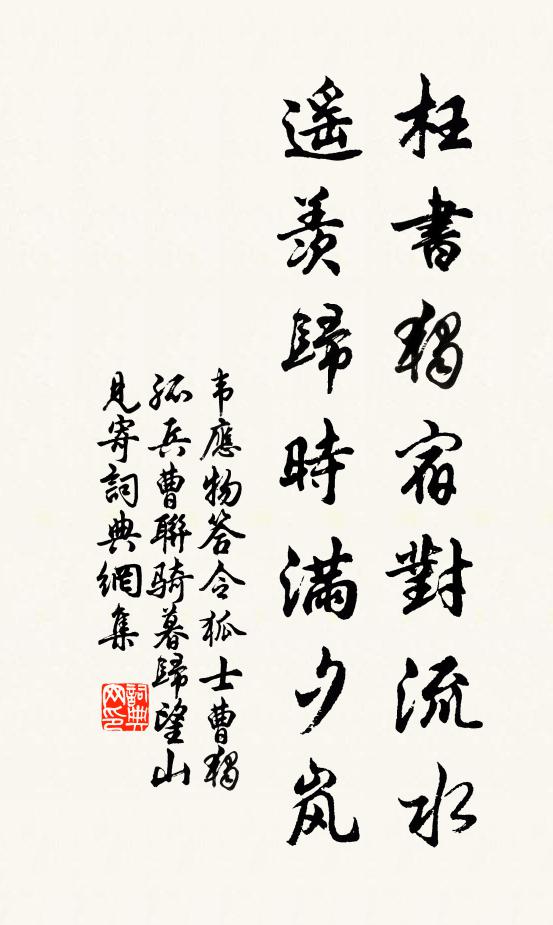 枉書獨宿對流水
遙羨歸時滿夕岚
韦應物答令狐士曹獨
孤兵曹聯骑暮歸望山
見寄詞典網集
詞典
网印